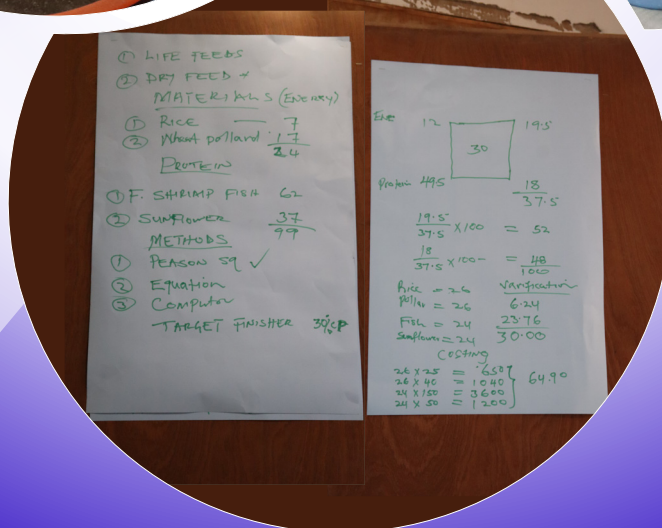 ① LIFE FEEDS
② DRY FEED
MATERIALS (ENERGY)
① RICE — 7
② Wheat pollard 17
24
PROTEIN
① F. SHRIMP FISH 62
② SUNFLOWER 37
99
METHODS
① PEASON SQ ✓
② Equation
③ Computer
TARGET FINISHER 30% CP
Ene 12 19.5
30
Protein 49.5 18
37.5
19.5/37.5 × 100 = 52
18/37.5 × 100 = 48
100
Rice = 26 Varification
pollar = 26 6.24
Fish = 24 23.76
Sunflower = 24 30.00
COSTING
26 × 25 = 650
26 × 40 = 1040
24 × 150 = 3600
24 × 50 = 1200
64.90